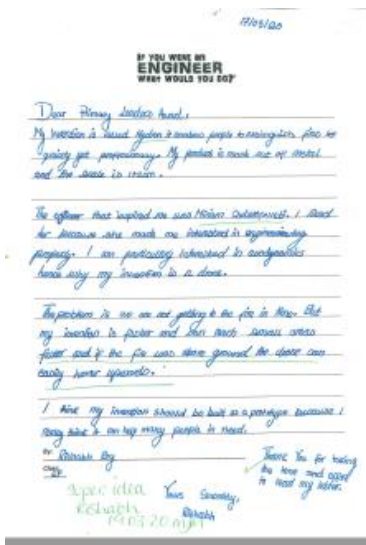 17/03/20
IF YOU WERE AN
ENGINEER
WHAT WOULD YOU DO?
Dear Primary Leaders Award,
My invention is called it enables people to extinguish fires
quickly yet . My product is made out of metal
and the scale is
The engineer that inspired me was Miriam . I
her because she made me interested in engineering
properly. I am particularly interested in aerodynamics
hence why my invention is a drone.
The problem is we are not getting to the fire in time. But
my invention is faster and can reach areas
faster and if the fire was above ground the drone can
easily hover upwards.
I think my invention should be built as a prototype because I
really think it can help many people in need.
By: Rishabh
Class:
Thank You for taking
the time and effort
to read my letter.
Yours Sincerely,
Rishabh
Super idea
Rishabh
19.03.20